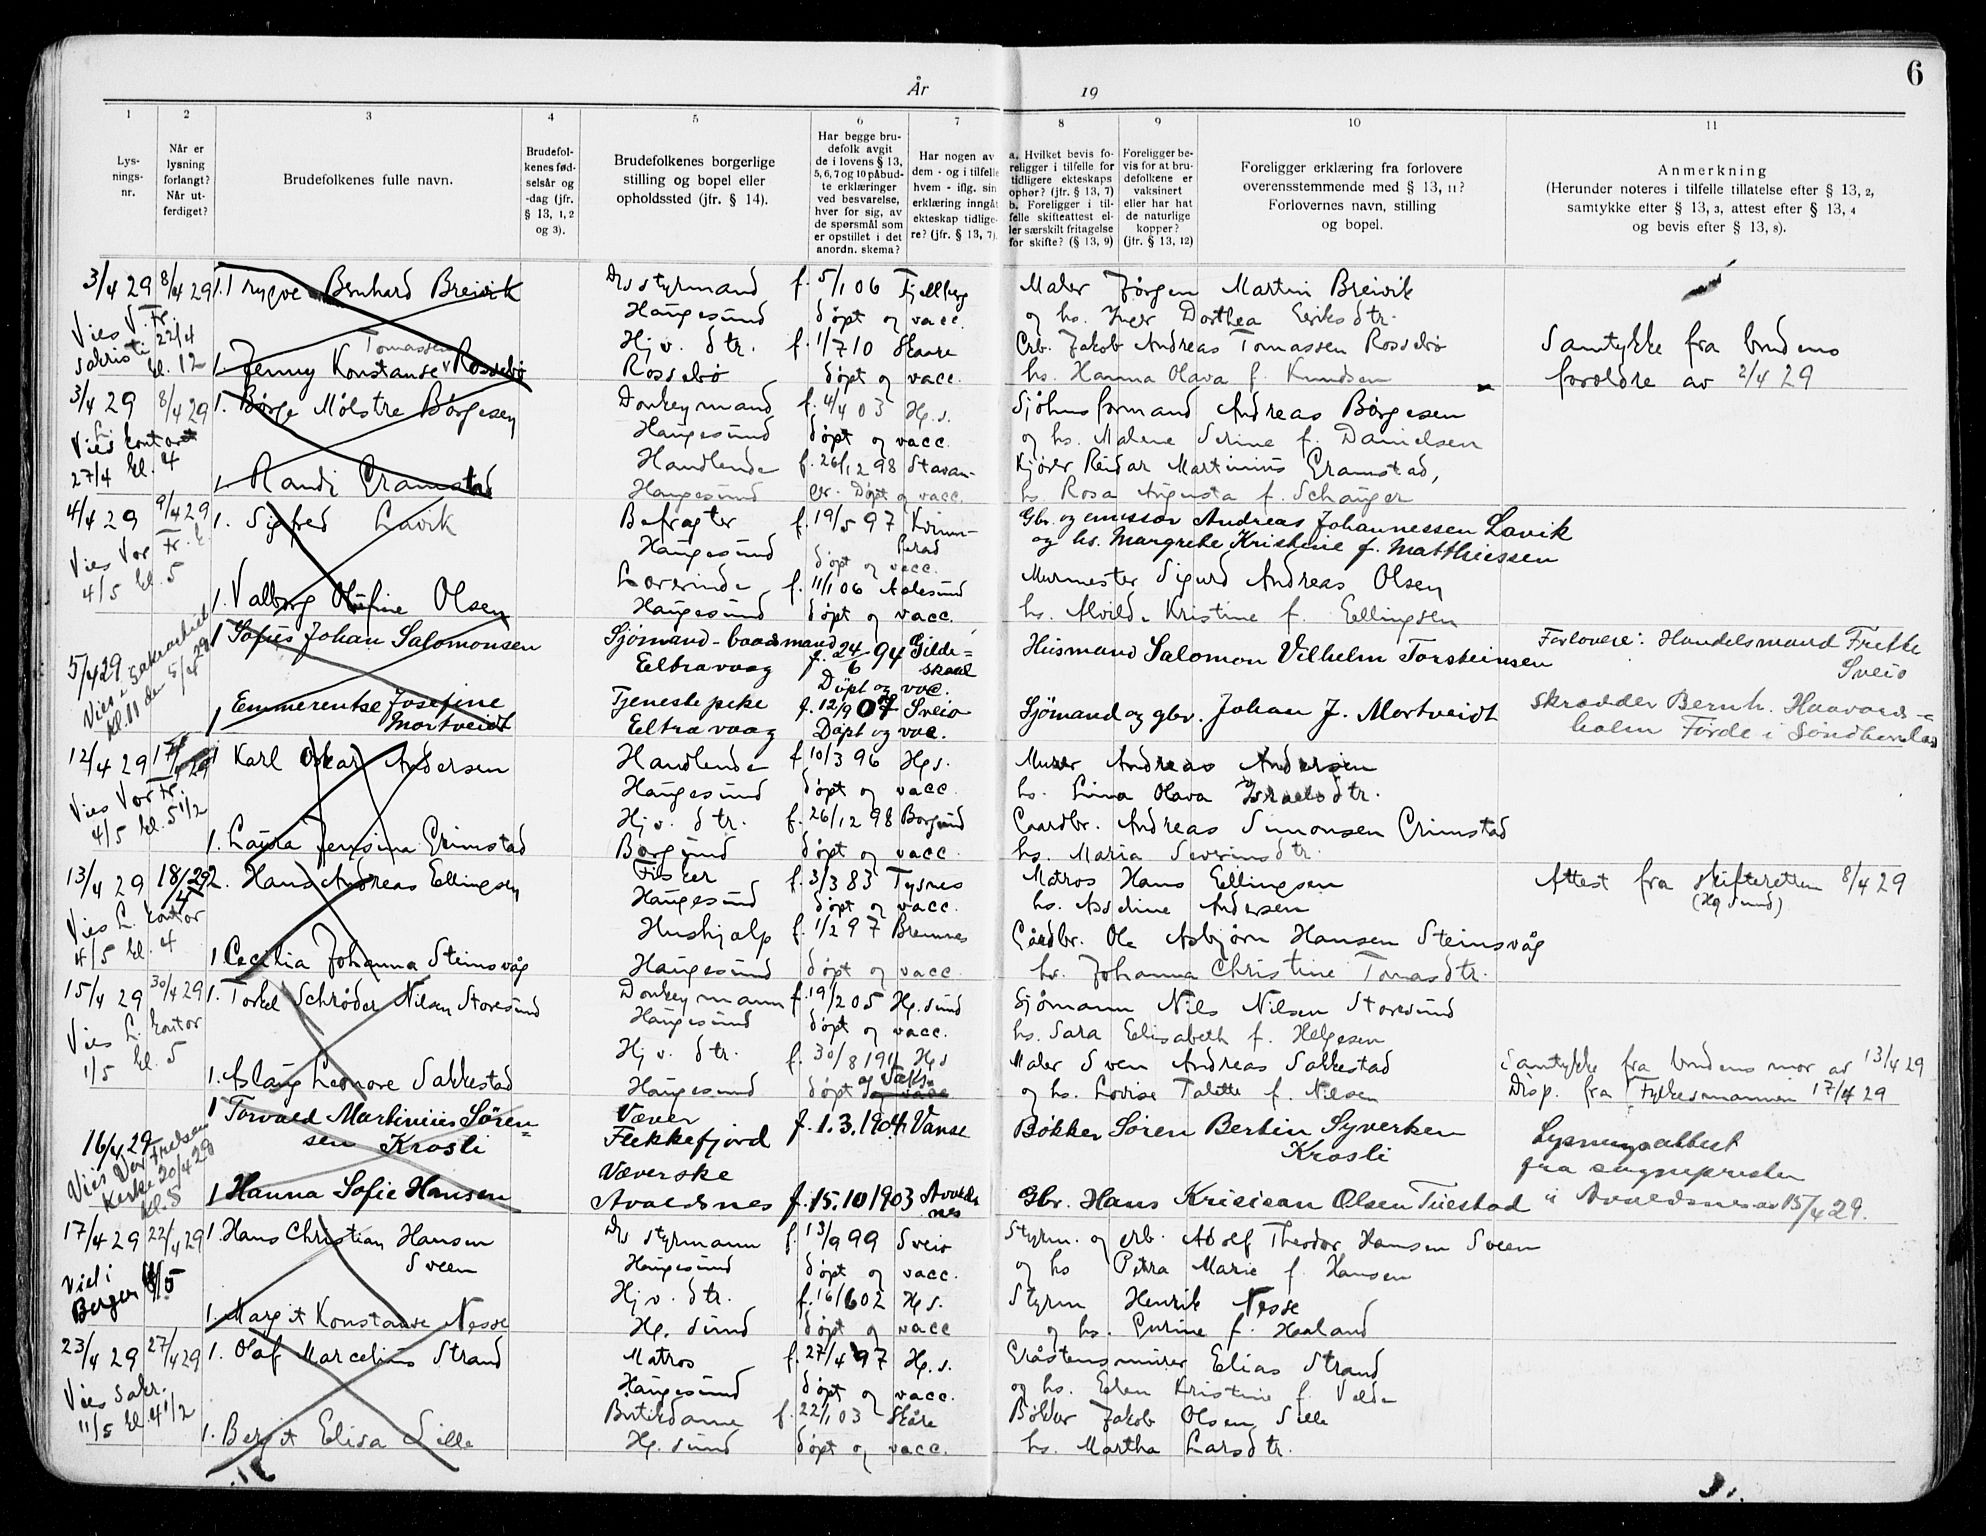 År 19
6
1 2 3 4 5 6 7 8 9 10 11
Lys-
nings-
nr.
Når er
lysning
forlangt?
Når ut-
ferdiget?
Brudefolkenes fulle navn.
Brudefol-
kenes fød-
selsår og
-dag (jfr.
§ 13, 1, 2
og 3).
Brudefolkenes borgerlige
stilling og bopel eller
opholdssted (jfr. § 14).
Har begge bru-
defolk avgit
de i lovens § 13,
5, 6, 7 og 10 påbud-
te erklæringer
ved besvarelse,
hver for sig, av
de spørsmål som
er opstillet i det
anordn. skema?
Har nogen av
dem - og i tilfelle
hvem - iflg. sin
erklæring inngåt
ekteskap tidlige-
re? (jfr. § 13, 7).
a. Hvilket bevis fo-
religger i tilfelle for
tidligere ekteskaps
ophør? (jfr. § 13, 7)
b. Foreligger i til-
felle skifteattest el-
ler særskilt fritagelse
for skifte? (§ 13, 9)
Foreligger be-
vis for at bru-
defolkene er
vaksinert
eller har hat
de naturlige
kopper?
(jfr. § 13, 12)
Foreligger erklæring fra forlovere
overensstemmende med § 13, 11?
Forlovernes navn, stilling
og bopel.
Anmerkning
(Herunder noteres i tilfelle tillatelse efter § 13, 2,
samtykke efter § 13, 3, attest efter § 13, 4
og bevis efter § 13, 8).
3/4 29 8/4 29 1. Trygve Bernhard Breivik styrmand f. 5/1 06 Fjellberg Maler Jørgen Martin Breivik
Vies V. Fr. Haugesund døpt og vacc. og hs. Inger Dorthea Eriksdtr.
sakristi 22/4 Tomassen Hj. v. dtr. f. 1/7 10 Skaare Erb. Jakob Andreas Tomassen Rossebø Samtykke fra brudens
kl. 12 1. Jenny Konstanse Rossebø Rossebø døpt og vacc. hs. Hanna Olava f. Knudsen foreldre av 2/4 29
3/4 29 8/4 29 1. Børge Mølstre Børgesen Donkeymand f. 4/4 03 Hg.s. Sjøhusformand Andreas Børgesen
Vies kontoret Haugesund døpt og vacc. og hs. Malene Serine f. Danielsen
27/4 kl. 4 1. Randi Gramstad Handlende f. 26/12 98 Stavan- Kjører Reidar Martinius Gramstad,
Haugesund ger. Døpt og vacc. hs. Rosa Augusta f. Schanger
4/4 29 9/4 29 1. Sigfred Lavik Befragter f. 19/5 97 Kvinn- Gbr. og emissær Andreas Johannessen Lavik
Vies Vor Fr. k. Haugesund herad døpt og vacc. og hs. Margrete Kristine f. Matthiessen
4/5 kl. 5 Lærerinde f. 11/1 06 Aalesund Murmester Sigurd Andreas Olsen
1. Valborg Olufine Olsen Haugesund døpt og vacc. hs. Alvilda Kristine f. Ellingsen
5/4 29 1 Sofus Johan Salomonsen Sjømand - baadsmand f. 24/6 94 Gilde- Husmand Salomon Vilhelm Torsteinsen Forlovere: Handelsmand Frette
Vies i sakristiet Eeltravaag skaal Døpt og vac. Sveio
kl. 11 den 5/4 29 1 Emmerentse Josefine Mortveidt Tjenestepike f. 12/9 07 Sveio Sjømand og gbr. Johan J. Mortveidt Skrædder Bernh. Haavards-
Eeltravaag Døpt og vac. holm Førde i Søndhordland
12/4 29 17/4 29 1 Karl Oskar Andersen Handlende f. 10/3 96 Hg s. Murer Andreas Andersen
Vies Vor Fr. Haugesund døpt og vacc. hs. Lina Olava Israelsdtr.
4/5 kl. 5 1/2 Hj v. dtr. f. 26/12 98 Borgund Gaardbr. Andreas Simonsen Grimstad
1. Laura Jensina Grimstad Borgund døpt og vacc. hs. Maria Severinsdtr.
13/4 29 18/4 29 2. Hans Andreas Ellingsen Fisker f. 3/3 83 Tysnes Matros Hans Ellingsen Attest fra skifteretten 8/4 29
Vies L. kontor Haugesund døpt og vacc. hs. Asseline Andersen (Hg Sund)
4/5 kl. 4 Hushjalp f. 1/2 97 Bremnes Gårdbr. Ole Asbjørn Hansen Steinsvåg
1 Cecilia Johanna Steinsvåg Haugesund døpt og vacc hs. Johanna Christine Tomasdtr.
15/4 29 30/4 29 1. Torkel Schrøder Nilsen Storesund Donkeymann f. 19/2 05 Hg.sund Sjømann Nils Nilsen Storesund
Vies L. kontor Haugesund døpt og vacc. hs. Sara Elisabeth f. Helgesen
1/5 kl. 5 Hj v. dtr. f. 30/8 1911 Hg s Maler Sven Andreas Sakkestad Samtykke fra brudens mor av 13/4 29
1. Aslaug Leonore Sakkestad Haugesund døpt og vacc og hs. Lovise Talette f. Nilsen Disp. fra Fylkesmannen 17/4 29
16/4 29 1 Torvald Martinius Søren- Væver f. 1.3.1904 Vanse Bøkker Søren Bertin Syvertsen Lysningsattest
Vies Vor Frelsers sen Krosli Flekkefjord Krosli fra sogneprester
Kirke 20/4 29 Væverske
kl. 5 1 Hanna Sofie Hansen Avaldsnes f. 15.10 1903 Avalds- nes Gbr. Hans Kristian Olsen Tuestad i Avaldsnes av 15/4 29.
17/4 29 22/4 29 1. Hans Christian Hansen styrmann f. 13/9 99 Sveio Styrm. og erb. Adolf Theodor Hansen Sveen
Viet i Sveen Haugesund døpt og vacc. og hs Petra Marie f. Hansen
Bergen Hj v. dtr. f. 16/6 02 Hg s. Styrm Henrik Nesse
1. Margit Konstanse Nesse Hg. sund døpt og vacc og hs. Gurine f. Haaland
23/4 29 27/4 29 1. Olaf Marcelius Strand Matros f. 27/4 97 Hg.s. Gråstensmurer Elias Strand
Vies sakr. Haugesund døpt og vacc. og hs. Elen Kristine f. Velde
11/5 kl. 4 1/2 Butikdame f. 22/1 03 Skåre Bøkker Jakob Olsen Lille
1. Bergit Elisa Lille Hg. sund døpt og vacc. hs. Martha Larsdtr.